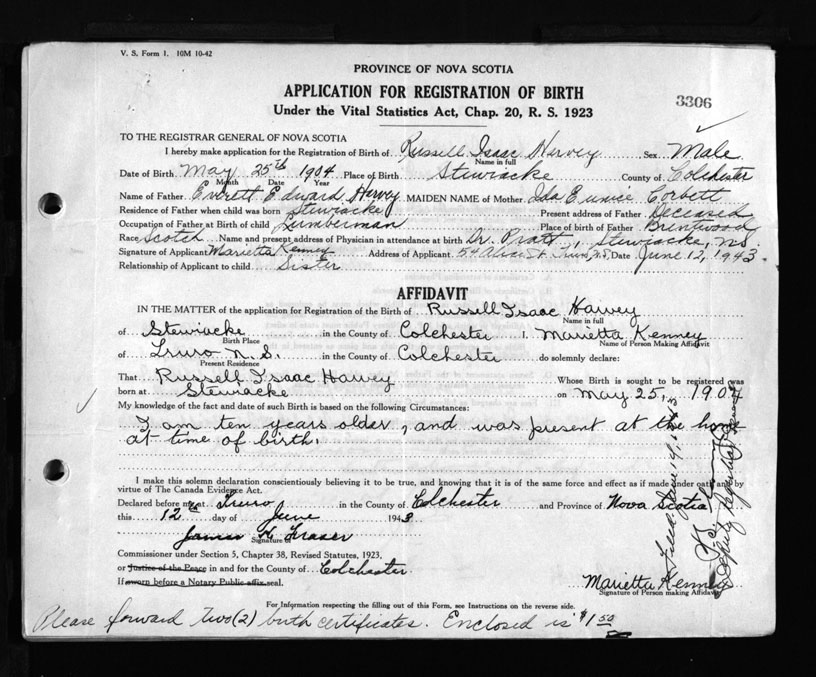 V. S. Form 1. 10M 10-42
PROVINCE OF NOVA SCOTIA
APPLICATION FOR REGISTRATION OF BIRTH
3306
Under the Vital Statistics Act, Chap. 20, R. S. 1923
TO THE REGISTRAR GENERAL OF NOVA SCOTIA
I hereby make application for the Registration of Birth of Russell Isaac Harvey Sex Male
Name in full
Date of Birth May 25th 1904 Place of Birth Stewiacke County of Colchester
Month Date Year
Name of Father Everett Edward Harvey MAIDEN NAME of Mother Ida Eunice Corbett
Residence of Father when child was born Stewiacke Present address of Father Deceased
Occupation of Father at Birth of child Lumberman Place of birth of Father Brentwood
Race Scotch Name and present address of Physician in attendance at birth Dr. Pratt, Stewiacke, N.S.
Signature of Applicant Marietta Kenney Address of Applicant 54 Alice St. Truro, N.S. Date June 12, 1943.
Relationship of Applicant to child Sister
AFFIDAVIT
IN THE MATTER of the application for Registration of the Birth of Russell Isaac Harvey
Name in full
of Stewiacke in the County of Colchester I, Marietta Kenney
Birth Place Name of Person Making Affidavit
of Truro N.S. in the County of Colchester do solemnly declare:
Present Residence
That Russell Isaac Harvey Whose Birth is sought to be registered was
born at Stewiacke on May 25, 1904
My knowledge of the fact and date of such Birth is based on the following Circumstances:
I am ten years older, and was present at the home
at time of birth.
I make this solemn declaration conscientiously believing it to be true, and knowing that it is of the same force and effect as if made under oath and by
virtue of The Canada Evidence Act.
Declared before me at Truro in the County of Colchester and Province of Nova Scotia
this 12th day of June 1943
James H Fraser
Signature of
Commissioner under Section 5, Chapter 38, Revised Statutes, 1923,
or Justice of the Peace in and for the County of Colchester
If sworn before a Notary Public affix seal.
Marietta Kenney
Signature of Person making Affidavit
For Information respecting the filling out of this Form, see Instructions on the reverse side.
Please forward two (2) birth certificates. Enclosed is $1.50
Deputy Registrar General